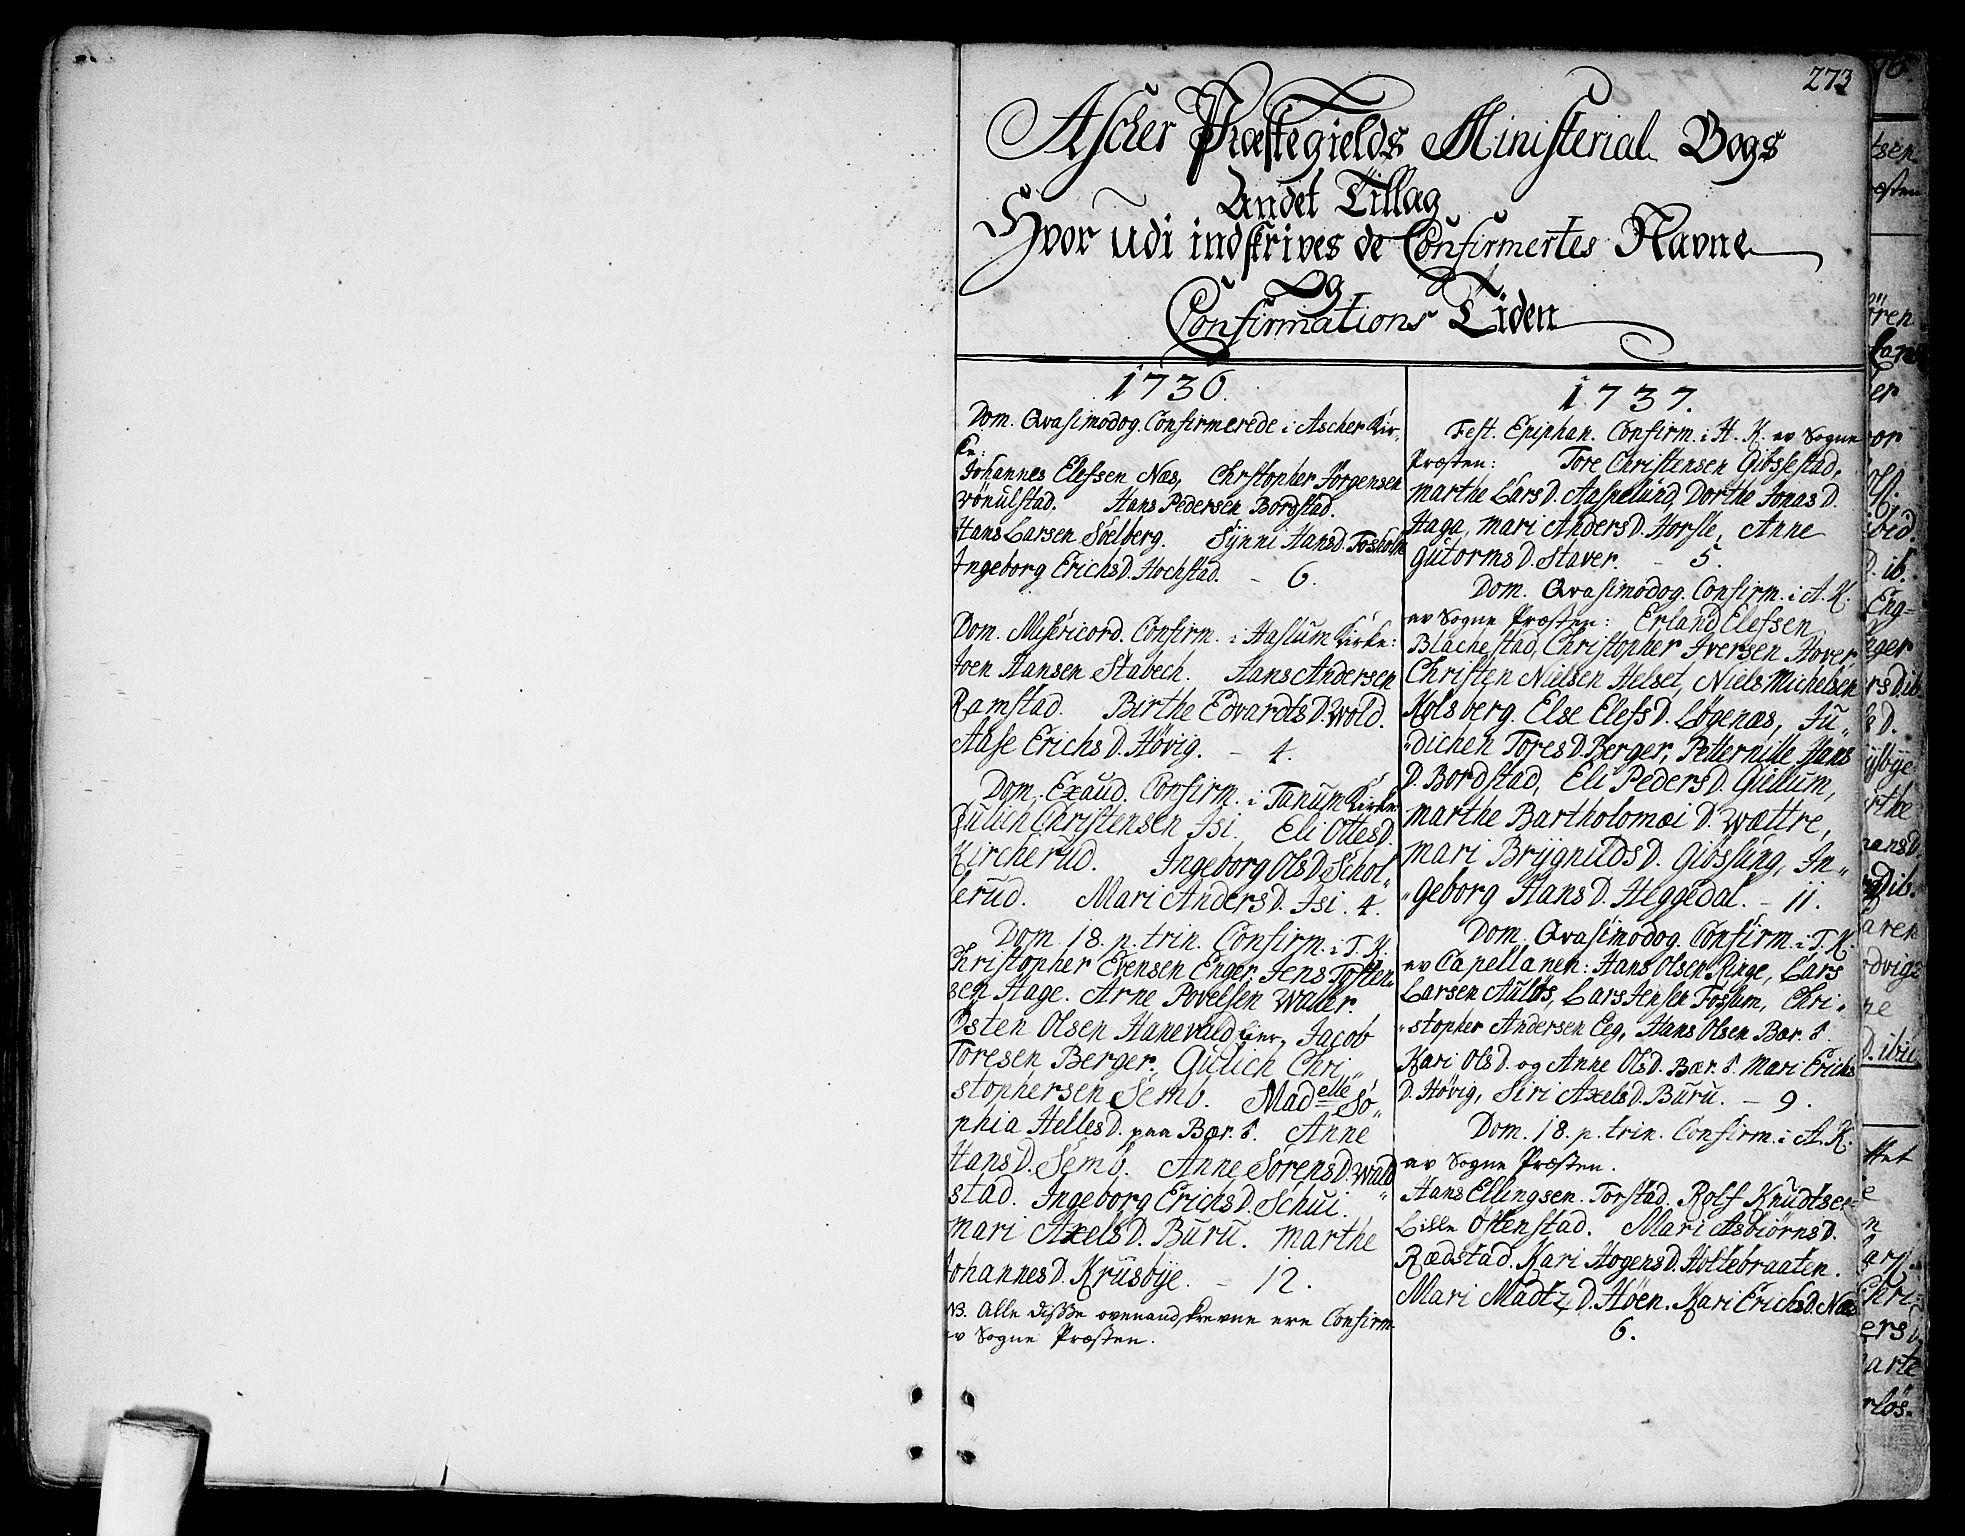 273
Ascher Præstegields Ministerial Bogs
Andet Tillæg
Hvor udi indskrives de Confirmertes Navne
Og
Confirmations Tiden
1736.
Dom. Qvasimodog. Confirmerede i Ascher Kir-
ke:
Johannes Elefsen Næs, Christopher Jorgensen
Wönulstad. Hans Pedersen Bordstad.
Hans Larsen Soelberg. Synni HansD. Fosholm
Ingeborg ErichsD. Hochstad. - 6.
Dom. Misericord. Confirm. i Haslum Kirke:
Joen Hansen Stabech. Hans Andersen
Ramstad. Birthe EdvardtsD. Wold.
Aase ErichsD. Høvig. - 4.
Dom. Exaud. Confirm. i Tanum Kirke
Gulich Christensen Isi. Eli OttesD.
Kircherud. Ingeborg OlsD. Schol-
lerud. Mari AndersD. Isi. 4.
Dom. 18. p. trin. Confirm. i T. K:
Christopher Evensen Enger. Jens Tosten-
sen Hage. Arne Povelsen Waller.
Østen Olsen Hanevald Eier, Jacob
Toresen Berger. Gulich Chri-
stophersen Semb. Madelle So-
phia HellesD. paa Bær. V. Anne
HansD. Semb. Anne SörensD. Wald
stad. Ingeborg ErichsD. Schui.
Mari AxelsD. Buru. Marthe
JohannesD. Krusbye. - 12.
NB. Alle disse ovenanskrevne ere Confirm.
av Sogne Præsten.
1737.
Fest. Epiphan. Confirm. i H. K. av Sogne
Præsten: Tore Christensen Gibslestad.
Marthe LarsD. Aaspelund, Dorthe JonasD.
Haga, Mari AndersD. Horsle, Anne
GutormsD. Staver. - 5.
Dom. Qvasimodog. Confirm. i A. K:
av Sogne Præsten: Erland Elefsen
Blachestad, Christopher Iversen Hover
Christen Nielsen Helset, Niels Michelsen
Holsberg. Else ElefsD. Løgenæs, Ju-
dichen ToresD. Berger, Petternille Hans
D. Bordstad, Eli PedersD. Gullum,
Marthe Bartholomæi D. Wættre,
Mari BrygnildsD. Gibsling, In-
geborg HansD. Heggedal. - 11.
Dom. Qvasimodog. Confirm. i T. K:
av Capellanen: Hans Olsen Ringe, Lars
Larsen Auløs, Lars Jensen Fossum, Chri-
stopher Andersen Eeg, Hans Olsen Bær. V.
Kari OlsD. og Anne OlsD. Bær. V. Mari Erichs
D. Høvig, Siri AxelsD. Buru. - 9.
Dom. 18. p. trin. Confirm. i A. K:
av Sogne Præsten.
Hans Ellingsen. Torstad. Rolf Knudtsen
Lille Østenstad. Mari AsbiørnsD.
Rædstad. Kari HogensD. Holtebraaten.
Mari MadtzD. Høen. Kari ErichsD. Næs
6.